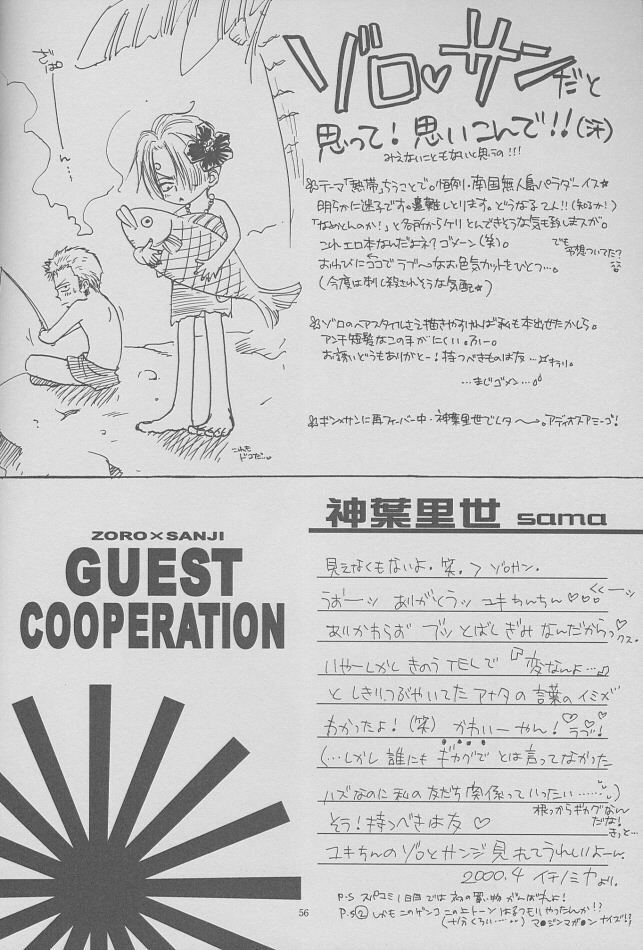 ぱこーん…
ゾロ♡サンだと
思って！思いこんで!!(汗)
みえないこともないと思うの!!!
テーマ「熱帯」ちうことで。恒例・南国無人島パラダーイス☆
明らかに迷うです。遭難しとります。どうなる二人!!(知るか！)
「なめとんのか！」と各所からケリとんできそうな気も致しますが。
これエロ本なんだよね？ゴメーン(笑)。
でも予想ついてた？
おわびにココでラブ〜なお色気カットをひとつ…。
(今度は刺し殺されそうな気配☆)
ゾロのヘアスタイルさえ描きやすければ私も本出せたかしら。
アンチ短髪なこの手がにくい。ふー。
お誘いどうもありがとー！持つべきものは友…
…まじゴメン…
ギン×サンに再フィーバー中・神葉里世でした〜。アディオスアミーゴ！
これもドコだ…
神葉里世 sama
ZORO×SANJI
GUEST
COOPERATION
見えなくもないよ。笑。＞ゾロサン。
うおーッ ありがとうッ ユキちんちん♡♡♡
くくーッ
あいかわらず ブッとばしぎみなんだからっ
クス。
いやーしかし きのうTELで『変なんよ…』
としきりにつぶやいてた アナタの言葉のイミが
わかったよ！(笑) かわいーやん！ラブ！♡♡♡
(…しかし 誰にもギャグで とは言ってなかった
ハズなのに 私の友だち関係っていったい……)
根っからギャグなんだな！きっと…
そう！持つべきは友♡
ユキちんのゾロとサンジ見れてうれしいよーん。
2000.4 イチノミヤより。
P.S スパコミ1日目では 本の買い物がんばれよ！
P.S② しかもこのゲンコ この上トーンはるつもりやったんか!?
(十分くろい……) マ●ジンマガ●ン ナイズ!?
56